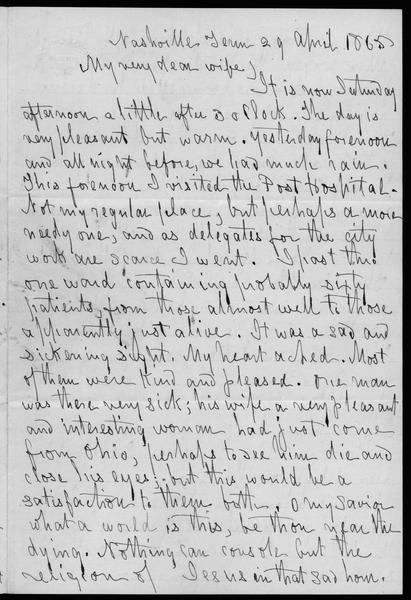 Nashville Tenn 29 April 1865
My very dear wife}
It is now Saturday
afternoon a little after 3 o Clock. The day is
very pleasant but warm. Yesterday forenoon
and all night before, we had much rain.
This forenoon I visited the Post Hospital.
Not my regular place, but perhaps a more
needy one, and as delegates for the city
work are scarce I went. I past thro
one ward containing probably sixty
patients, from those almost well to those
apparently just alive. It was a sad and
sickening sight. My heart ached. Most
of them were kind and pleased. One man
was there very sick; his wife a very pleasant
and interesting woman had just come
from Ohio, perhaps to see him die and
close his eyes; but this would be a
satisfaction to them both. O my Savior
what a world is this, be thou near the
dying. Nothing can console but the
religion of Jesus in that sad hour.